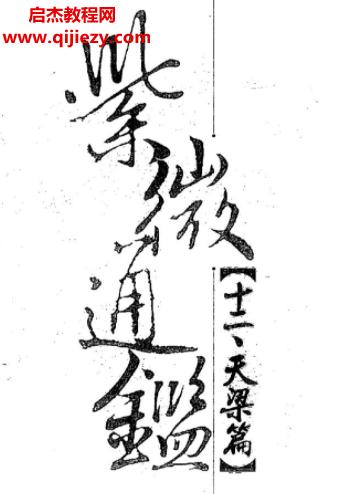 启杰教程网
www.qijiezy.com
紫微通鑑
【十二、天梁篇】